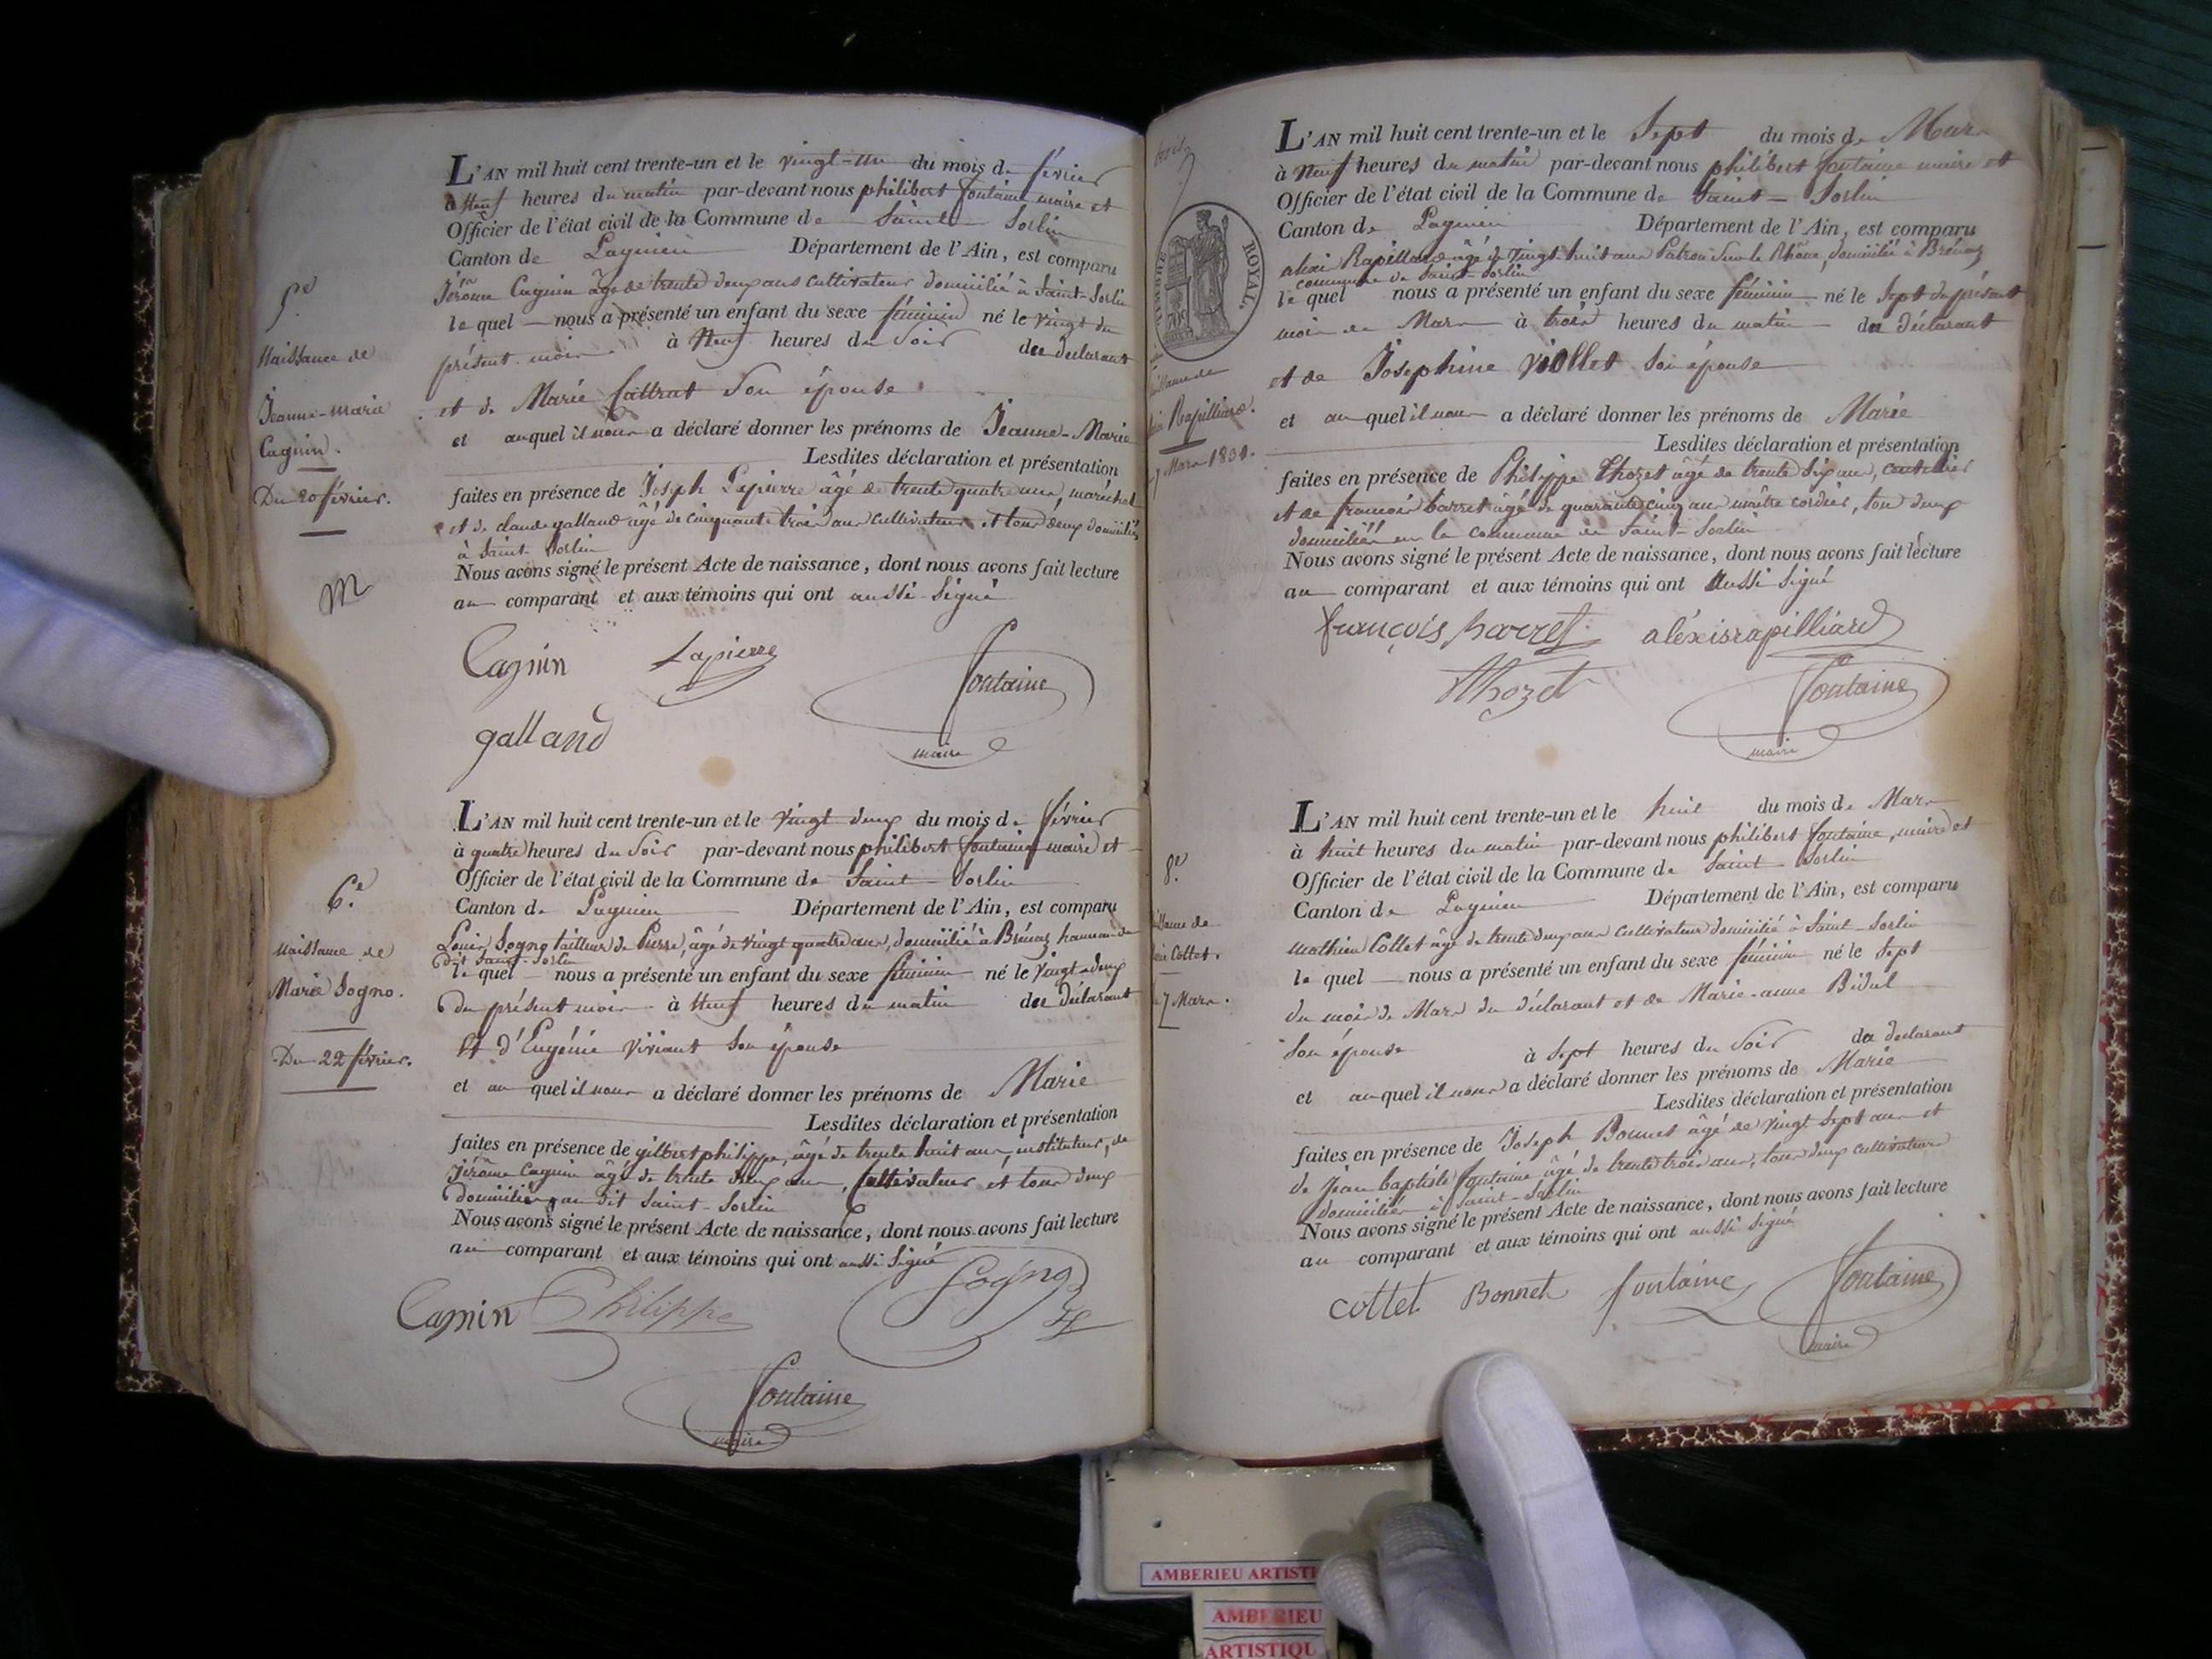 5e
Naissance de
Jeanne-Marie
Cagnin.
Du 20 février.
L'AN mil huit cent trente-un et le vingt-un du mois de février
à Neuf heures du matin par-devant nous philibert fontaine maire et
Officier de l'état civil de la Commune de Saint Sorlin
Canton de Lagnieu Département de l'Ain, est comparu
Jérôme Cagnin âgé de trente deux ans cultivateur domicilié à Saint-Sorlin
le quel nous a présenté un enfant du sexe féminin né le vingt du
présent mois à Neuf heures du Soir du déclarant
et de Marie Son épouse
et auquel il nous a déclaré donner les prénoms de Jeanne-Marie
Lesdites déclaration et présentation
faites en présence de Joseph Lapierre âgé de trente quatre ans, maréchal
et de claude galland âgé de cinquante trois ans cultivateur et tous deux domiciliés
à Saint-Sorlin
Nous avons signé le présent Acte de naissance, dont nous avons fait lecture
au comparant et aux témoins qui ont aussi Signé
Cagnin Lapierre fontaine
galland maire
6e
Naissance de
Marie Sogno.
Du 22 février.
L'AN mil huit cent trente-un et le vingt deux du mois de février
à quatre heures du Soir par-devant nous philibert fontaine maire et
Officier de l'état civil de la Commune de Saint Sorlin
Canton de Lagnieu Département de l'Ain, est comparu
Louis Sogno tailleur de Pierre, âgé de vingt quatre ans, domicilié à Brénaz hameau de
dit Saint-Sorlin
le quel nous a présenté un enfant du sexe féminin né le vingt deux
du présent mois à Neuf heures du matin du déclarant
Et d'Eugénie Viviant Son épouse
et au quel il nous a déclaré donner les prénoms de Marie
Lesdites déclaration et présentation
faites en présence de gilbert philippe, âgé de trente huit ans, instituteur, de
Jérôme Cagnin âgé de trente deux ans, Cultivateur et tous deux
domiciliés au dit Saint-Sorlin
Nous avons signé le présent Acte de naissance, dont nous avons fait lecture
au comparant et aux témoins qui ont aussi Signé
Cagnin Philippe Sogno
fontaine
maire
TIMBRE ROYAL.
Rapilliard.
7 Mars 1831.
L'AN mil huit cent trente-un et le Sept du mois de Mars
à Neuf heures du matin par-devant nous philibert fontaine maire et
Officier de l'état civil de la Commune de Saint-Sorlin
Canton de Lagnieu Département de l'Ain, est comparu
Rapilliard âgé de vingt huit ans Patron Sur le Rhône, domicilié à Brénaz
commune de Saint-Sorlin
le quel nous a présenté un enfant du sexe féminin né le Sept du présent
mois de Mars à trois heures du matin du déclarant
et de Josephine Viollet Son épouse
et au quel il nous a déclaré donner les prénoms de Marie
Lesdites déclaration et présentation
faites en présence de Philippe Thozet âgé de trente Six ans,
et de françois barret âgé de quarante cinq ans maître cordier, tous deux
domiciliés en la commune de Saint-Sorlin
Nous avons signé le présent Acte de naissance, dont nous avons fait lecture
au comparant et aux témoins qui ont Aussi Signé
françois barret aléxis rapilliard
Thozet fontaine
maire
8e
Cottet.
7 Mars.
L'AN mil huit cent trente-un et le huit du mois de Mars
à huit heures du matin par-devant nous philibert fontaine, maire et
Officier de l'état civil de la Commune de Saint-Sorlin
Canton de Lagnieu Département de l'Ain, est comparu
mathieu Cottet âgé de trente deux ans cultivateur domicilié à Saint-Sorlin
le quel nous a présenté un enfant du sexe féminin né le Sept
du mois de Mars du déclarant et de Marie-anne
Son épouse à Sept heures du Soir du déclarant
et auquel il nous a déclaré donner les prénoms de Marie
Lesdites déclaration et présentation
faites en présence de Joseph Bonnet âgé de vingt Sept ans et
de Jean baptiste fontaine âgé de trente trois ans, tous deux cultivateurs
domiciliés à Saint-Sorlin
Nous avons signé le présent Acte de naissance, dont nous avons fait lecture
au comparant et aux témoins qui ont aussi Signé
cottet Bonnet fontaine fontaine
maire
AMBERIEU ARTISTI
AMBERIEU
ARTISTIQU